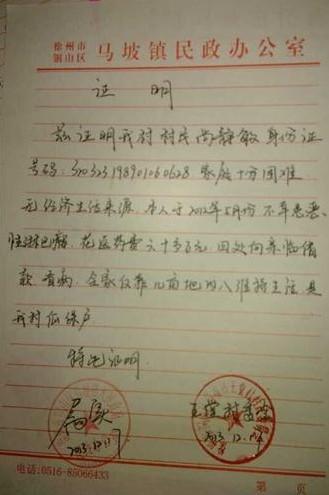 徐州市
铜山区 马坡镇民政办公室
证 明
兹证明我村村民尚静敏身份证
号码:320323198901060628 家庭十分困难
无经济生活来源 本人于2012年5月份不幸患恶
性淋巴瘤 花医药费六十多万元 四处向亲临借
款 看病 全家仅靠几亩地的入维持生活 是
我村低保户
特此证明
属实
2013.12.17
王堂村委会
2013.12.
电话:0516-85066433
第 页